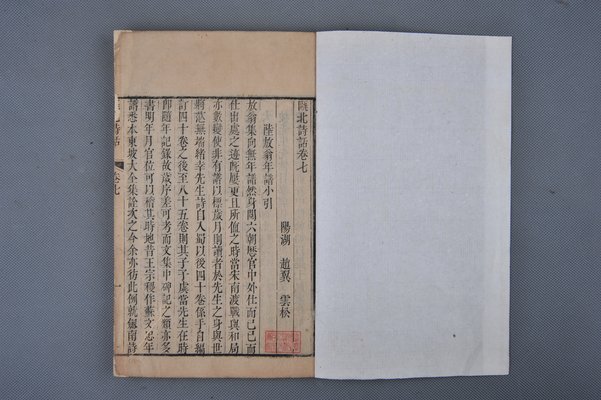 甌北詩話卷七
陽湖 趙翼 雲松
陸放翁年譜小引
放翁集向無年譜然身閱六朝歷官中外仕而已已而
仕出處之迹旣屢更且所值之時當宋南渡戰與和局
亦數變使非有譜以標歲月則讀者於先生之身與世
將茫無端緒幸先生詩自入蜀以後四十卷係手自編
訂四十卷之後至八十五卷則其子子虡當先生在時
卽隨年記錄故歲序差可考而文集中碑記之類亦多
書明年月官位可以稽其時地昔王宗稷作蘇文忠年
譜悉本東坡大全集詮次之今余亦仿此例就劍南詩
甌北詩話
卷七